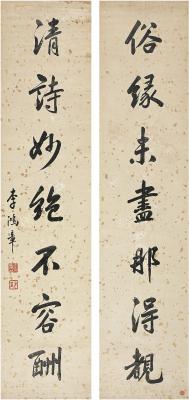 俗緣未盡那得覯
清詩妙絕不容酬
李鴻章